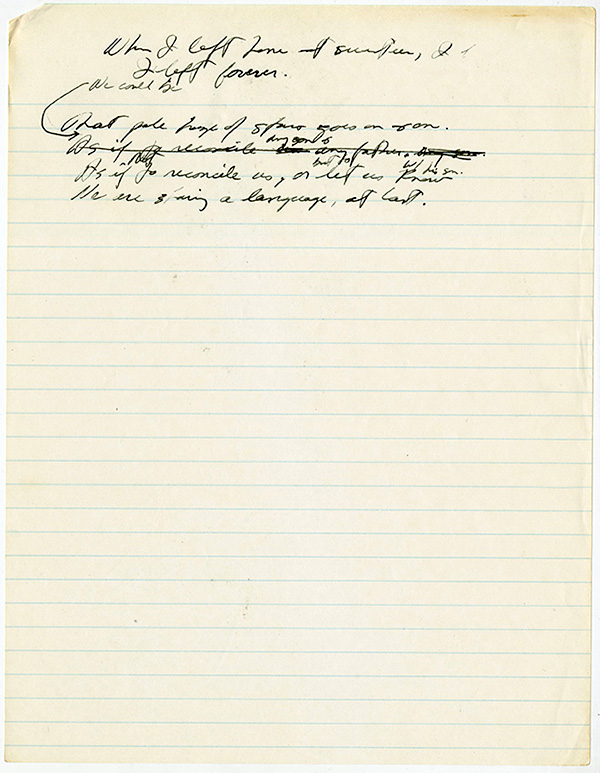 When I left home at seventeen, I
I left forever.
We could be
That pale haze of stars goes on & on.
As if to reconcile any father, any son.
As if to reconcile us, or let us know
We are a language, at last.